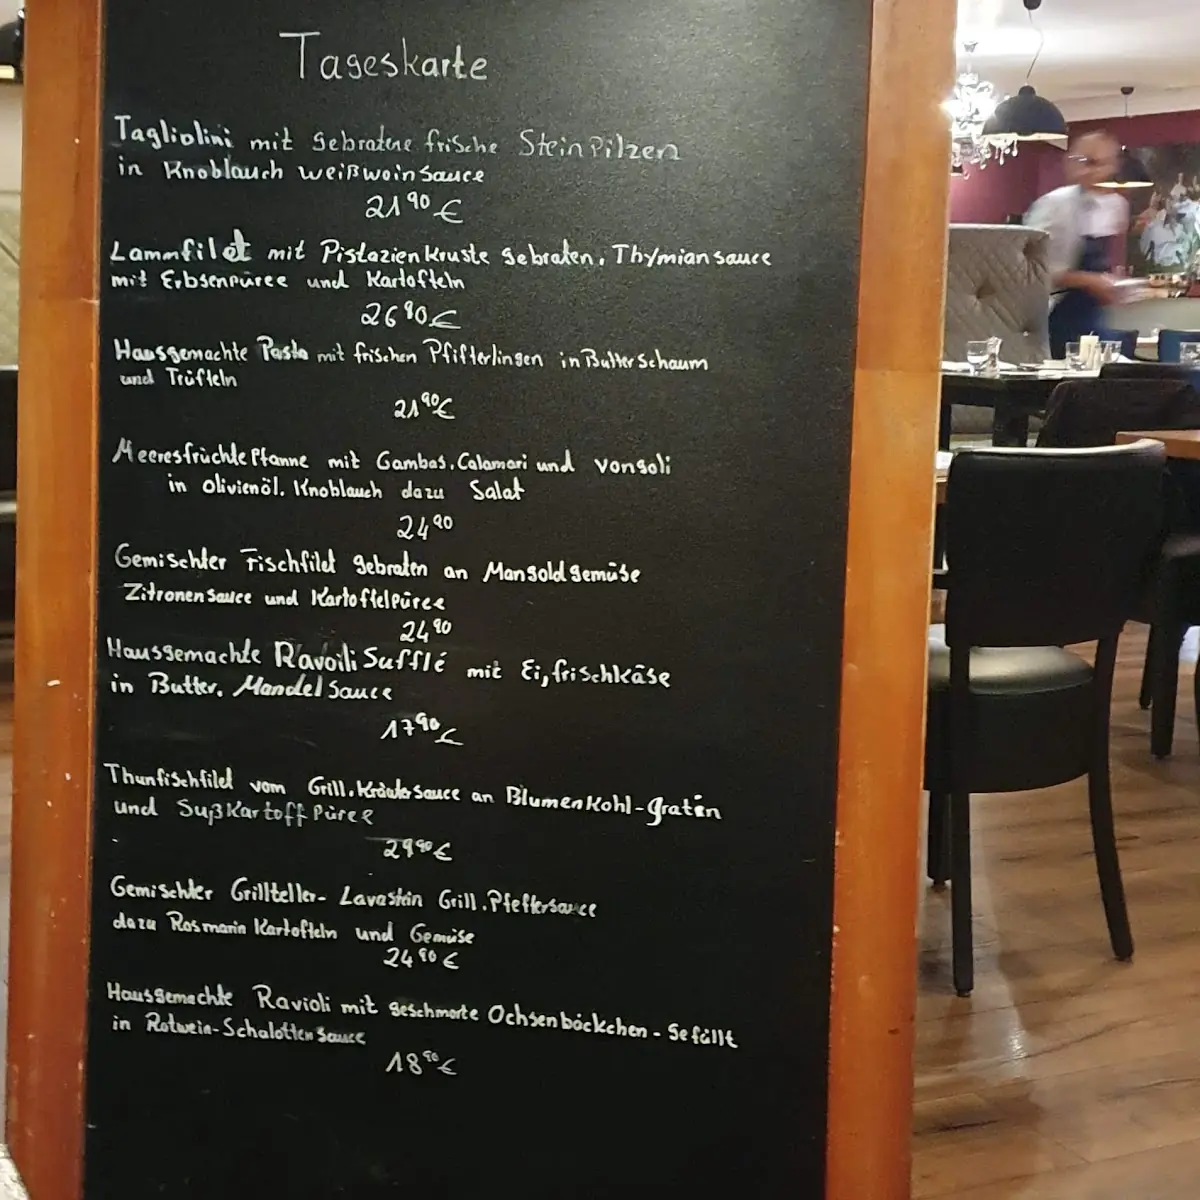 Tageskarte
Tagliolini mit gebratene frische SteinPilzen
in Knoblauch weißweinsauce
21⁹⁰ €
Lammfilet mit Pistazienkruste gebraten. Thymiansauce
mit Erbsenpüree und Kartoffeln
26⁹⁰ €
Hausgemachte Pasta mit frischen Pfifferlingen in Butterschaum
und Trüffeln
21⁹⁰ €
Meeresfrüchte Pfanne mit Gambas. Calamari und vongoli
in olivienöl. Knoblauch dazu Salat
24⁹⁰
Gemischter Fischfilet gebraten an Mangoldgemüse
Zitronensauce und Kartoffelpüree
24⁹⁰
Hausgemachte Ravoili Sufflé mit Ei, frischkäse
in Butter. Mandelsauce
17⁹⁰ €
Thunfischfilet vom Grill. Kräutersauce an Blumenkohl-gratin
und Sußkartoff Püree
29⁹⁰ €
Gemischter Grillteller- Lavastein Grill. Pfeffersauce
dazu Rosmarin Kartoffeln und Gemüse
24⁹⁰ €
Hausgemachte Ravioli mit geschmorte Ochsenbäckchen - gefüllt
in Rotwein-Schalottensauce
18⁹⁰ €